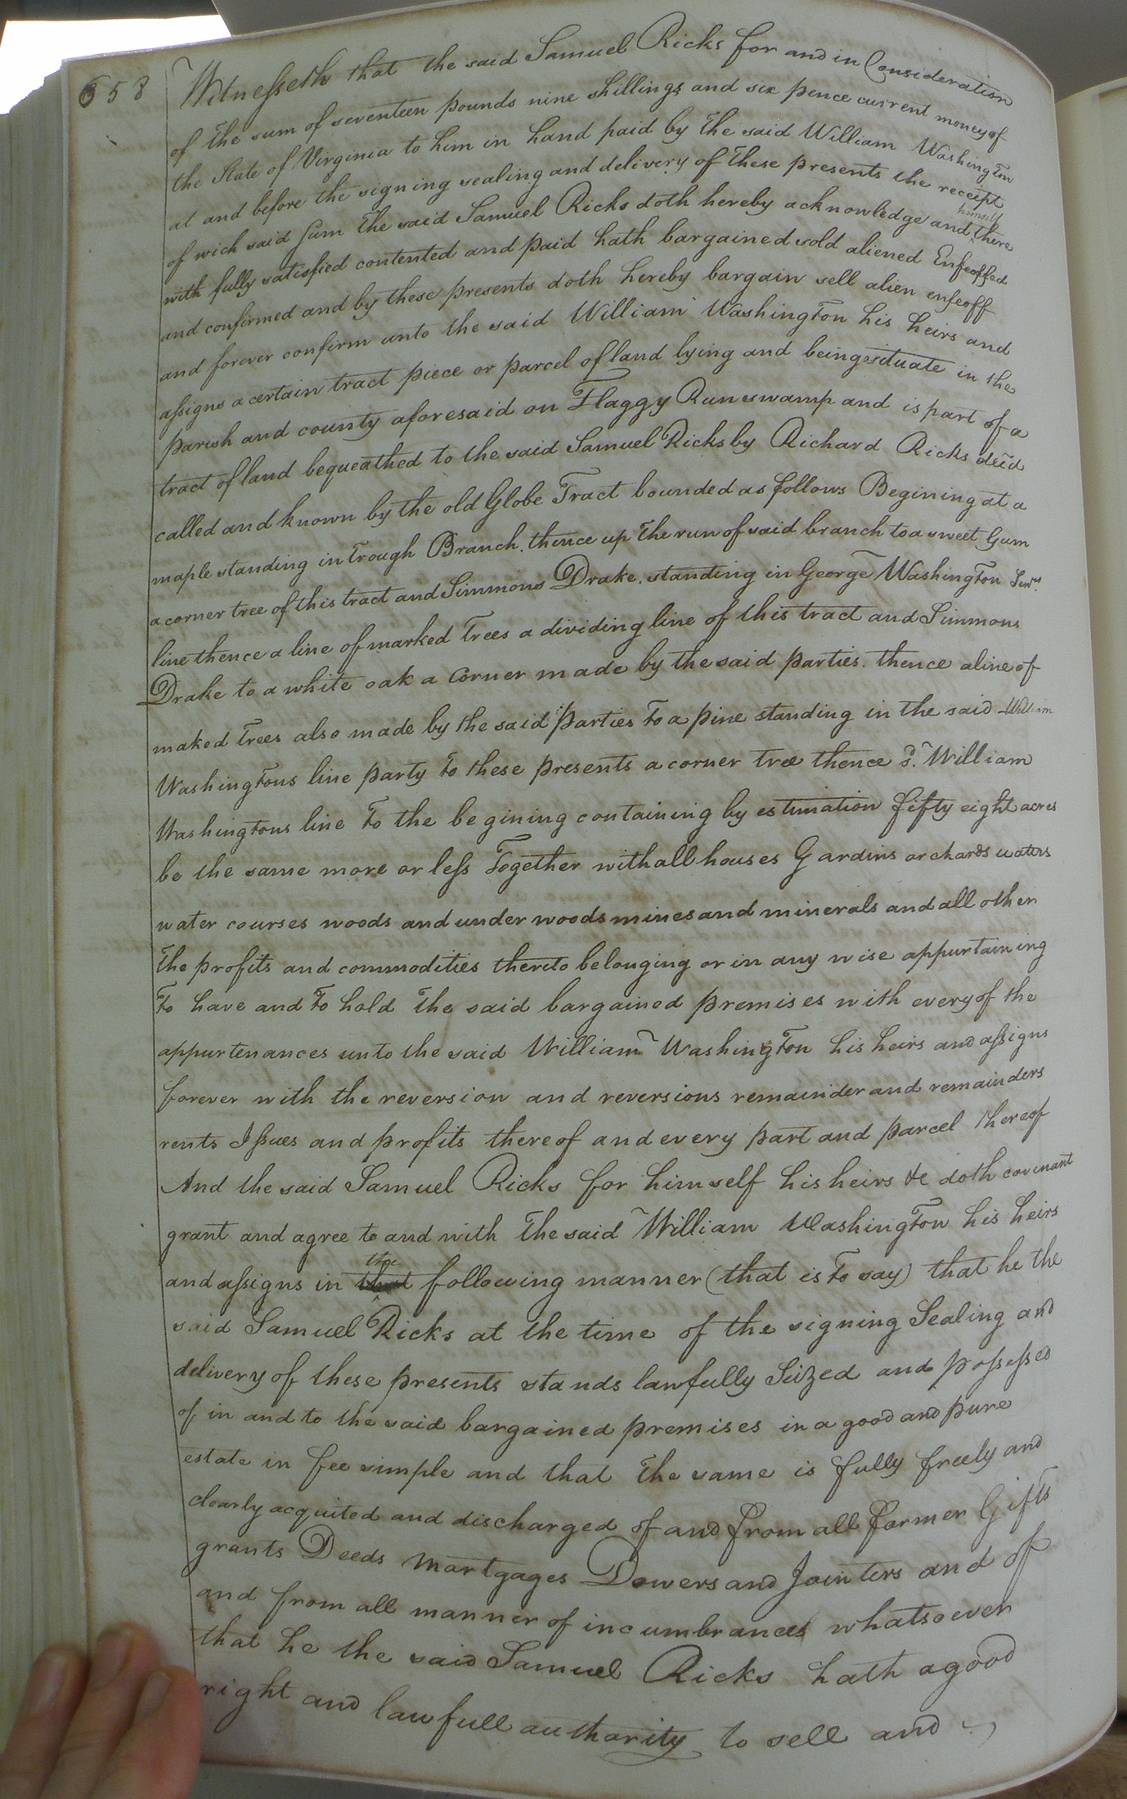 658
Witnesseth that the said Samuel Ricks for and in Consideration
of the sum of seventeen pounds nine shillings and six pence current money of
the State of Virginia to him in hand paid by the said William Washington
at and before the signing sealing and delivery of these presents the receipt
of wich said sum the said Samuel Ricks doth hereby acknowledge and himself there
with fully satisfied contented and paid hath bargained sold aliened Enfeoffed
and confirmed and by these presents doth hereby bargain sell alien enfeoff
and forever confirm unto the said William Washington his heirs and
assigns a certain tract piece or parcel of land lying and being situate in the
parish and county aforesaid on Flaggy Run swamp and is part of a
tract of land bequeathed to the said Samuel Ricks by Richard Ricks decd
called and known by the old Globe Tract bounded as follows Begining at a
maple standing in Trough Branch, thence up the run of said branch to a sweet Gum
a corner tree of this tract and Simmons Drake, standing in George Washington Senr.
line thence a line of marked Trees a dividing line of this tract and Simmons
Drake to a white oak a Corner made by the said parties, thence a line of
maked Trees also made by the said parties to a pine standing in the said William
Washingtons line party to these presents a corner tree thence sd. William
Washingtons line to the begining containing by estimation fifty eight acres
be the same more or less Together with all houses Gardins orchards waters
water courses woods and under woods mines and minerals and all other
the profits and commodities thereto belonging or in any wise appurtaining
To have and to hold the said bargained premises with every of the
appurtenances unto the said William Washington his heirs and assigns
forever with the reversion and reversions remainder and remainders
rents Issues and profits thereof and every part and parcel thereof
And the said Samuel Ricks for himself his heirs &c doth covinant
grant and agree to and with the said William Washington his heirs
and assigns in the following manner (that is to say) that he the
said Samuel Ricks at the time of the signing Sealing and
delivery of these presents stands lawfully Seized and possessed
of in and to the said bargained premises in a good and pure
estate in fee simple and that the same is fully freely and
clearly acquited and discharged of and from all former Gifts
grants Deeds mortgages Dowers and Jointers and of
and from all manner of incumbrances whatsoever
that he the said Samuel Ricks hath a good
right and lawfull authority to sell and